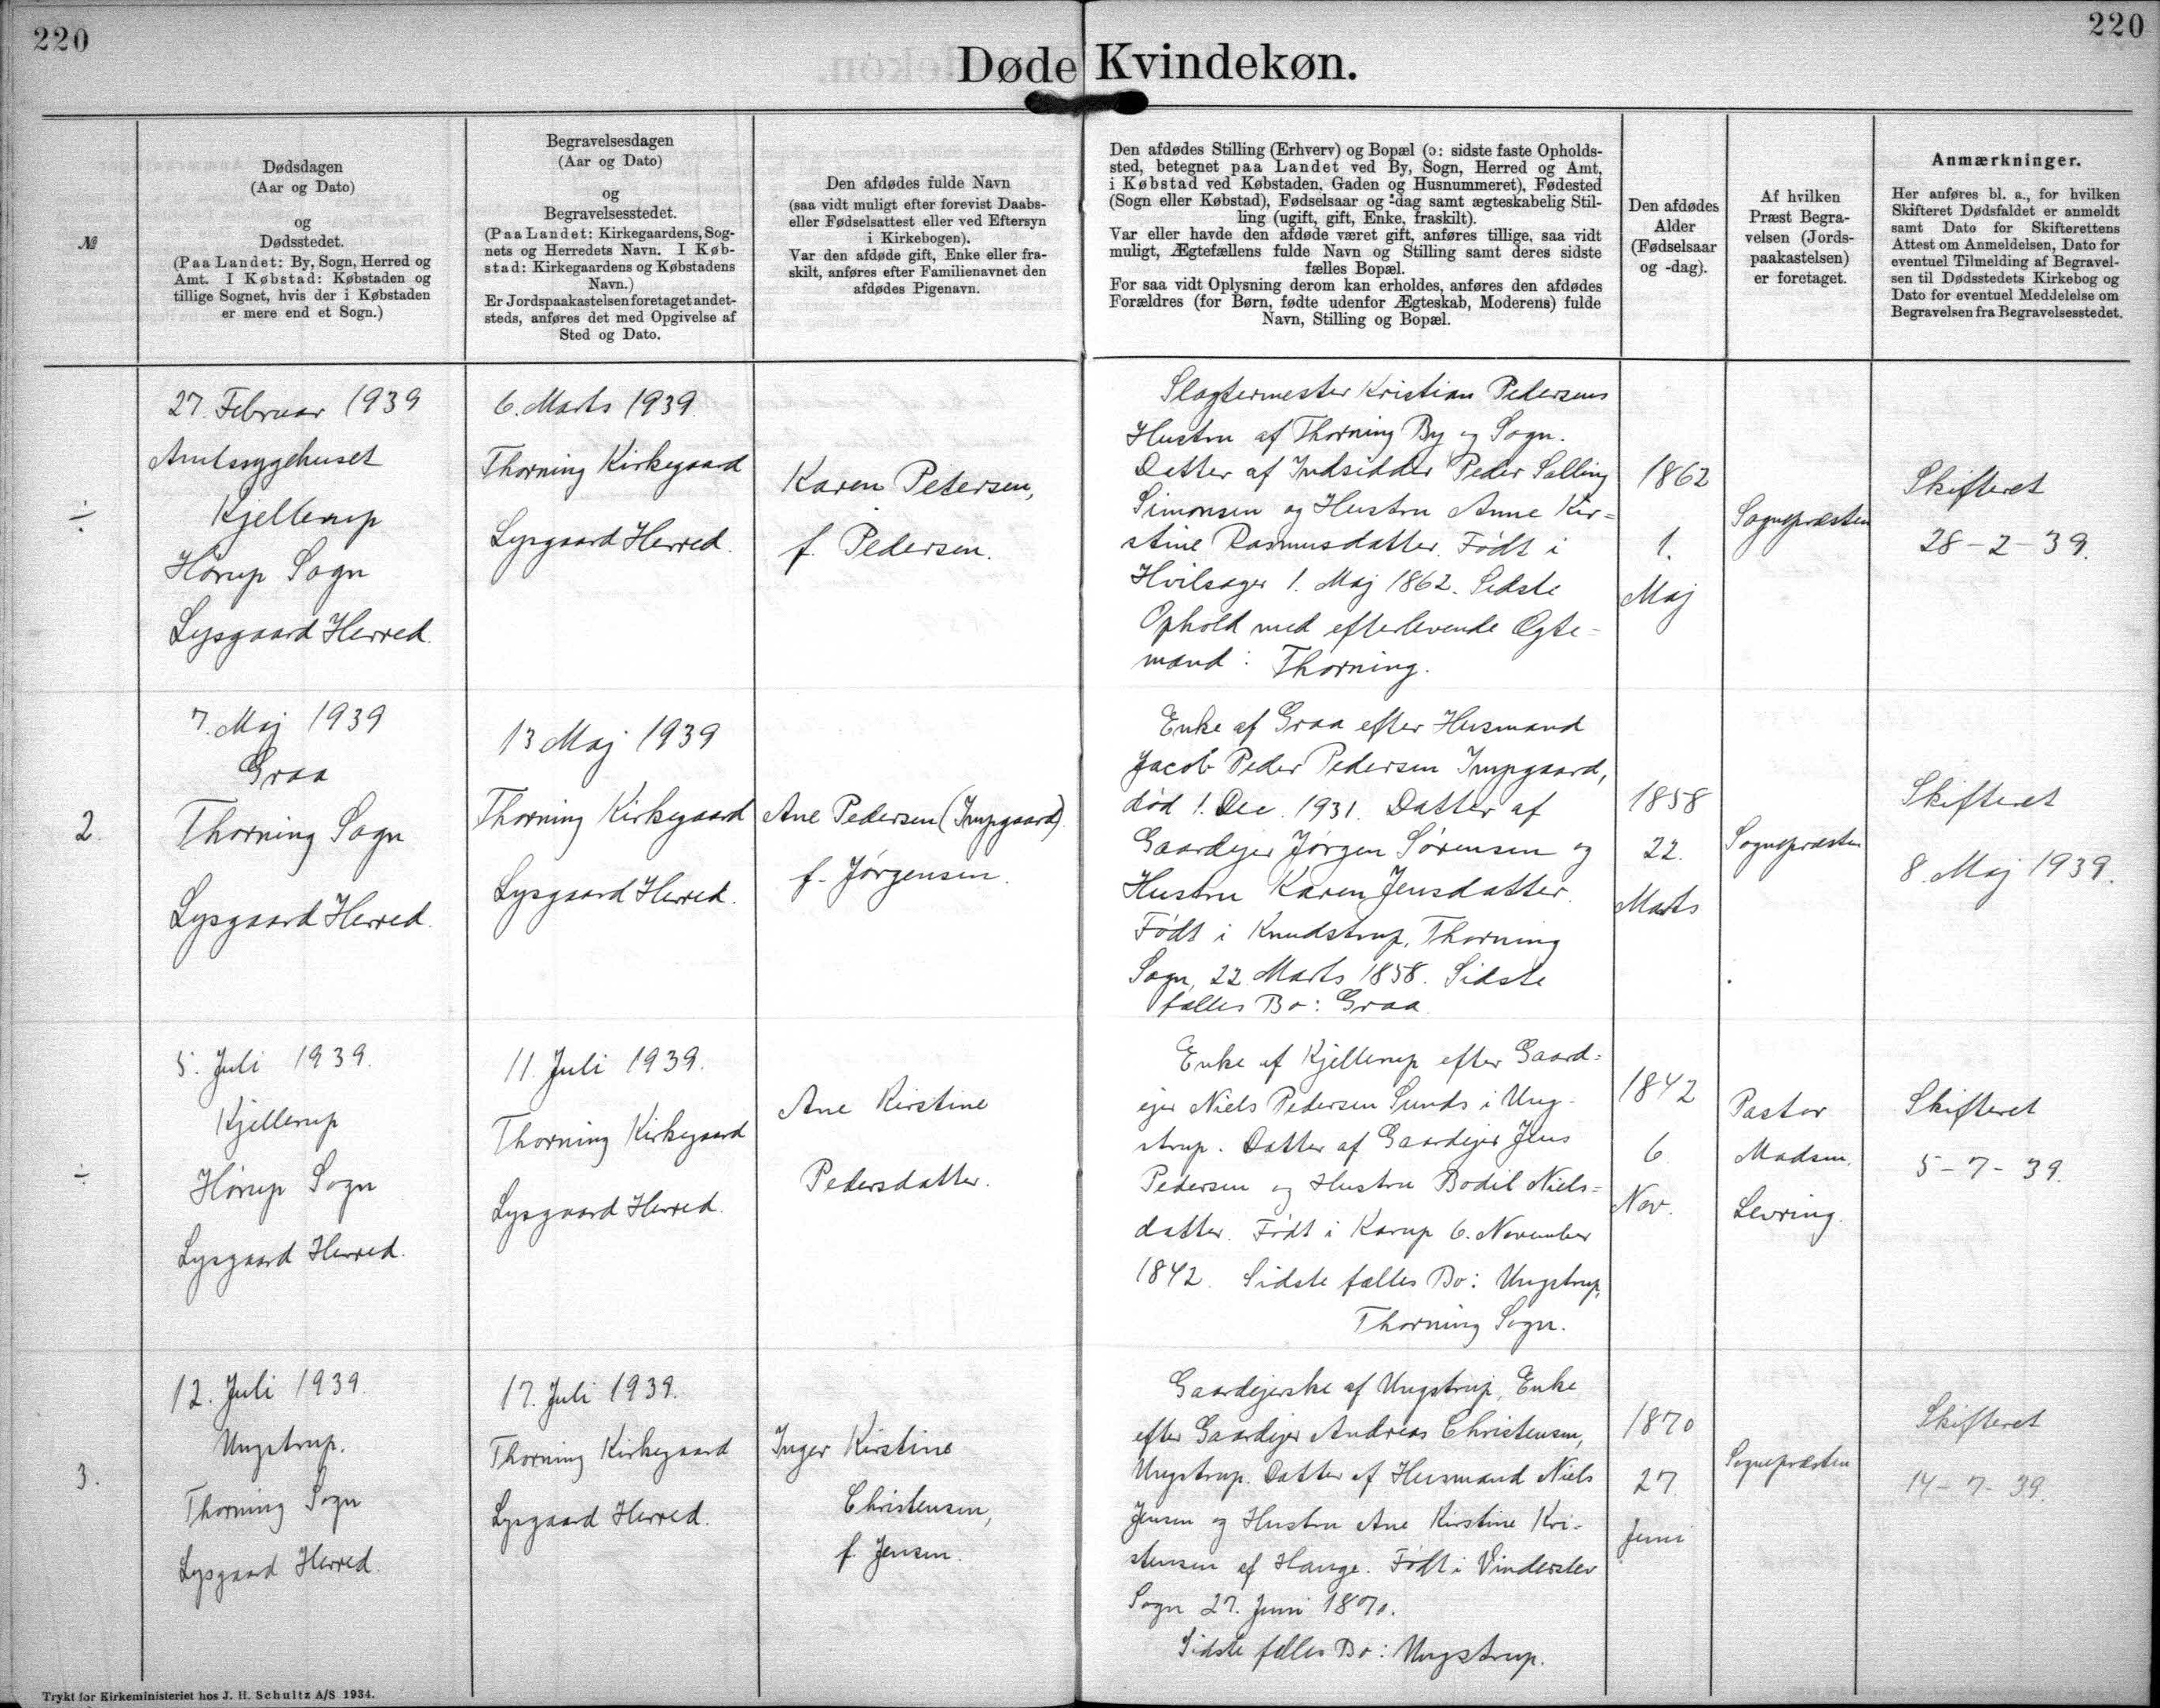 220
220
Døde Kvindekøn.
№
Dødsdagen
(Aar og Dato)
og
Dødsstedet.
(Paa Landet: By, Sogn, Herred og
Amt. I Købstad: Købstaden og
tillige Sognet, hvis der i Købstaden
er mere end et Sogn.)
Begravelsesdagen
(Aar og Dato)
og
Begravelsesstedet.
(Paa Landet: Kirkegaardens, Sog-
nets og Herredets Navn. I Køb-
stad: Kirkegaardens og Købstadens
Navn.)
Er Jordspaakastelsen foretaget andet-
steds, anføres det med Opgivelse af
Sted og Dato.
Den afdødes fulde Navn
(saa vidt muligt efter forevist Daabs-
eller Fødselsattest eller ved Eftersyn
i Kirkebogen).
Var den afdøde gift, Enke eller fra-
skilt, anføres efter Familienavnet den
afdødes Pigenavn.
Den afdødes Stilling (Erhverv) og Bopæl (ɔ: sidste faste Opholds-
sted, betegnet paa Landet ved By, Sogn, Herred og Amt,
i Købstad ved Købstaden, Gaden og Husnummeret), Fødested
(Sogn eller Købstad), Fødselsaar og -dag samt ægteskabelig Stil-
ling (ugift, gift, Enke, fraskilt).
Var eller havde den afdøde været gift, anføres tillige, saa vidt
muligt, Ægtefællens fulde Navn og Stilling samt deres sidste
fælles Bopæl.
For saa vidt Oplysning derom kan erholdes, anføres den afdødes
Forældres (for Børn, fødte udenfor Ægteskab, Moderens) fulde
Navn, Stilling og Bopæl.
Den afdødes
Alder
(Fødselsaar
og -dag).
Af hvilken
Præst Begra-
velsen (Jords-
paakastelsen)
er foretaget.
Anmærkninger.
Her anføres bl. a., for hvilken
Skifteret Dødsfaldet er anmeldt
samt Dato for Skifterettens
Attest om Anmeldelsen, Dato for
eventuel Tilmelding af Begravel-
sen til Dødsstedets Kirkebog og
Dato for eventuel Meddelelse om
Begravelsen fra Begravelsesstedet.
÷
27. Februar 1939
Amtssygehuset
Kjellerup
Hørup Sogn
Lysgaard Herred.
6. Marts 1939.
Thorning Kirkegaard
Lysgaard Herred.
Karen Petersen,
f. Pedersen.
Slagtermester Kristian Pedersens
Hustru af Thorning By og Sogn.
Datter af Indsidder Peder Salling
Simonsen og Hustru Anne Kir=
stine Rasmusdatter. Født i
Hvilsager 1. Maj 1862. Sidste
Ophold med efterlevende Ægte-
mand: Thorning.
1862
1.
Maj
Sognepræsten
Skifteret
28-2-39.
2.
7. Maj 1939
Graa
Thorning Sogn
Lysgaard Herred.
13 Maj 1939
Thorning Kirkegaard
Lysgaard Herred.
Ane Pedersen (Impgaard)
f. Jørgensen.
Enke af Graa efter Husmand
Jacob Peder Pedersen Impgaard,
død 1. Dec. 1931. Datter af
Gaardejer Jørgen Sørensen og
Hustru Karen Jensdatter.
Født i Knudstrup, Thorning
Sogn, 22. Marts 1858. Sidste
fælles Bo: Graa.
1858
22.
Marts
Sognepræsten
Skifteret
8. Maj 1939.
÷
5. Juli 1939.
Kjellerup
Hørup Sogn
Lysgaard Herred.
11. Juli 1939.
Thorning Kirkegaard
Lysgaard Herred.
Ane Kirstine
Pedersdatter.
Enke af Kjellerup efter Gaard=
ejer Niels Pedersen Sunds i Ung-
strup. Datter af Gaardejer Jens
Pedersen og Hustru Bodil Niels=
datter. Født i Karup 6. November
1842. Sidste fælles Bo: Ungstrup,
Thorning Sogn.
1842
6.
Nov.
Pastor
Madsen.
Levring.
Skifteret
5-7-39.
3.
12. Juli 1939.
Ungstrup.
Thorning Sogn
Lysgaard Herred.
17. Juli 1939.
Thorning Kirkegaard
Lysgaard Herred.
Inger Kirstine
Christensen,
f. Jensen.
Gaardejerske af Ungstrup, Enke
efter Gaardejer Andreas Christensen,
Ungstrup. Datter af Husmand Niels
Jensen og Hustru Ane Kirstine Kri-
stensen af Hauge. Født i Vinderslev
Sogn 27. Juni 1870.
Sidste fælles Bo: Ungstrup.
1870
27
Juni
Sognepræsten
Skifteret
14-7-39.
Trykt for Kirkeministeriet hos J. H. Schultz A/S 1934.